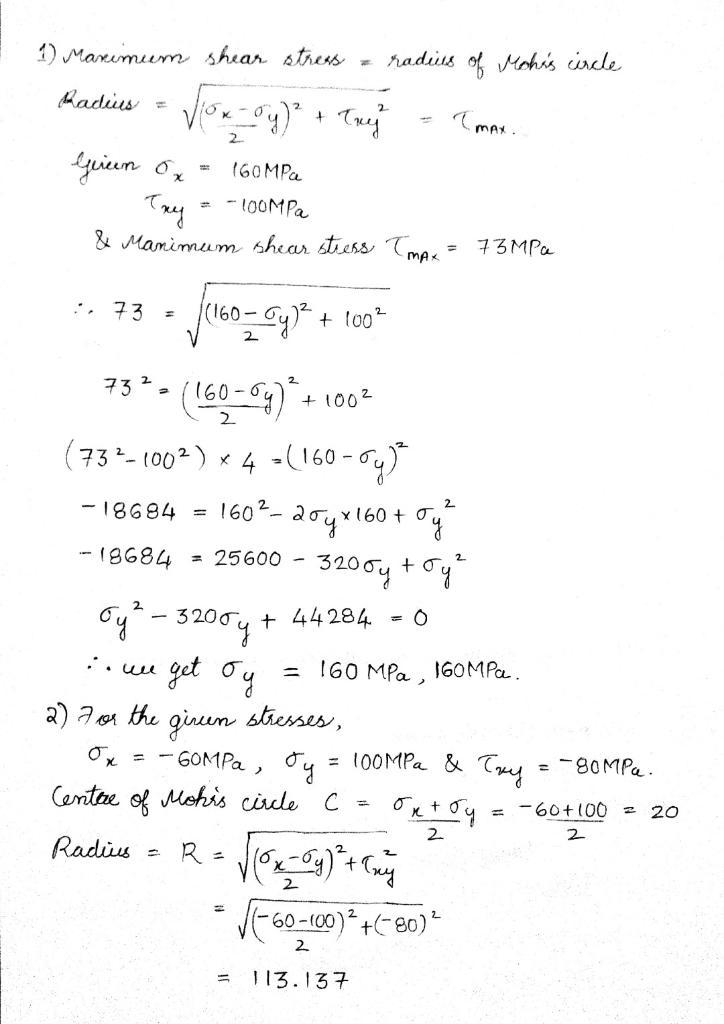 1) Maximum shear stress = radius of Mohr's circle
Radius = √((σx - σy)/2)² + τxy² = τMAX.
Given σx = 160MPa
τxy = -100MPa
& Maximum shear stress τMAX = 73MPa
∴ 73 = √((160 - σy)/2)² + 100²
73² = ((160 - σy)/2)² + 100²
(73² - 100²) × 4 = (160 - σy)²
-18684 = 160² - 2σy × 160 + σy²
-18684 = 25600 - 320σy + σy²
σy² - 320σy + 44284 = 0
∴ we get σy = 160 MPa, 160MPa.
2) For the given stresses,
σx = -60MPa, σy = 100MPa & τxy = -80MPa.
Centre of Mohr's circle C = (σx + σy)/2 = (-60+100)/2 = 20
Radius = R = √((σx - σy)/2)² + τxy²
= √((-60-100)/2)² + (-80)²
= 113.137